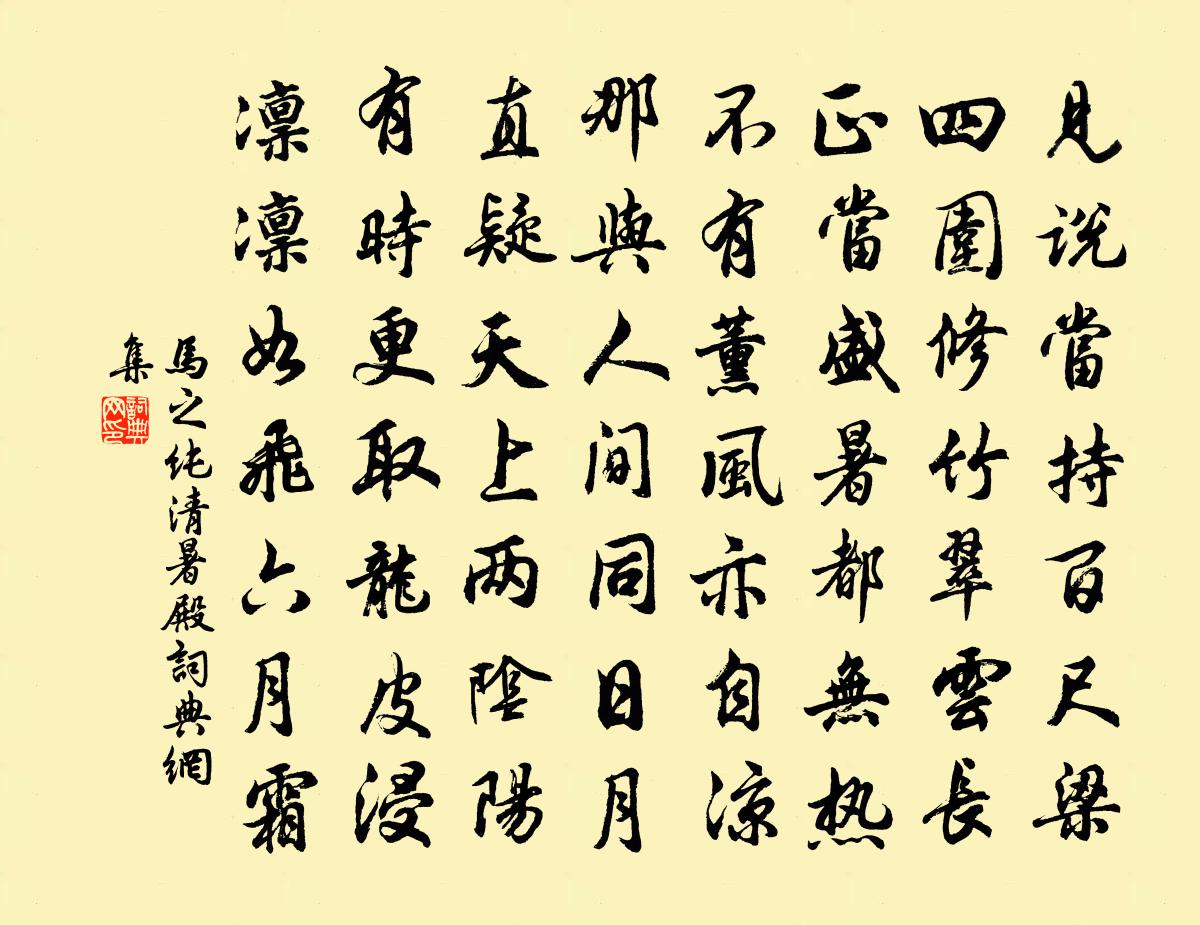 見説當持百尺梁
四圍修竹翠雲長
正當盛暑都無热
不有薰風亦自涼
那與人間同日月
直疑天上两陰陽
有時更取龍皮浸
凛凛如飛六月霜
馬之純清暑殿詞典網
集
詞典
网印